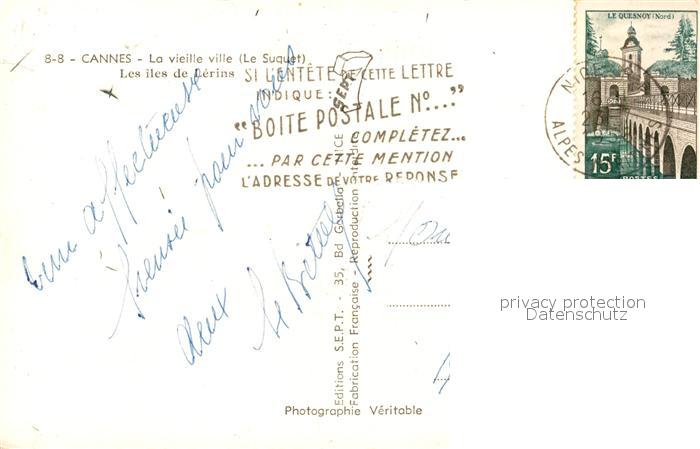 8-8 - CANNES - La vieille ville (Le Suquet)
Les îles de Lérins
SI L'ENTÊTE DE CETTE LETTRE
INDIQUE:
"BOITE POSTALE No...."
COMPLÉTEZ...
... PAR CETTE MENTION
L'ADRESSE DE VOTRE REPONSE
LE QUESNOY (Nord)
15F
POSTES
NICE
ALPES
Une affectueuse
pensée pour vous
deux
Editions S.E.P.T. - 35, Bd Gorbella - NICE
Fabrication Française - Reproduction Interdite
SEPT
Photographie Véritable
privacy protection
Datenschutz